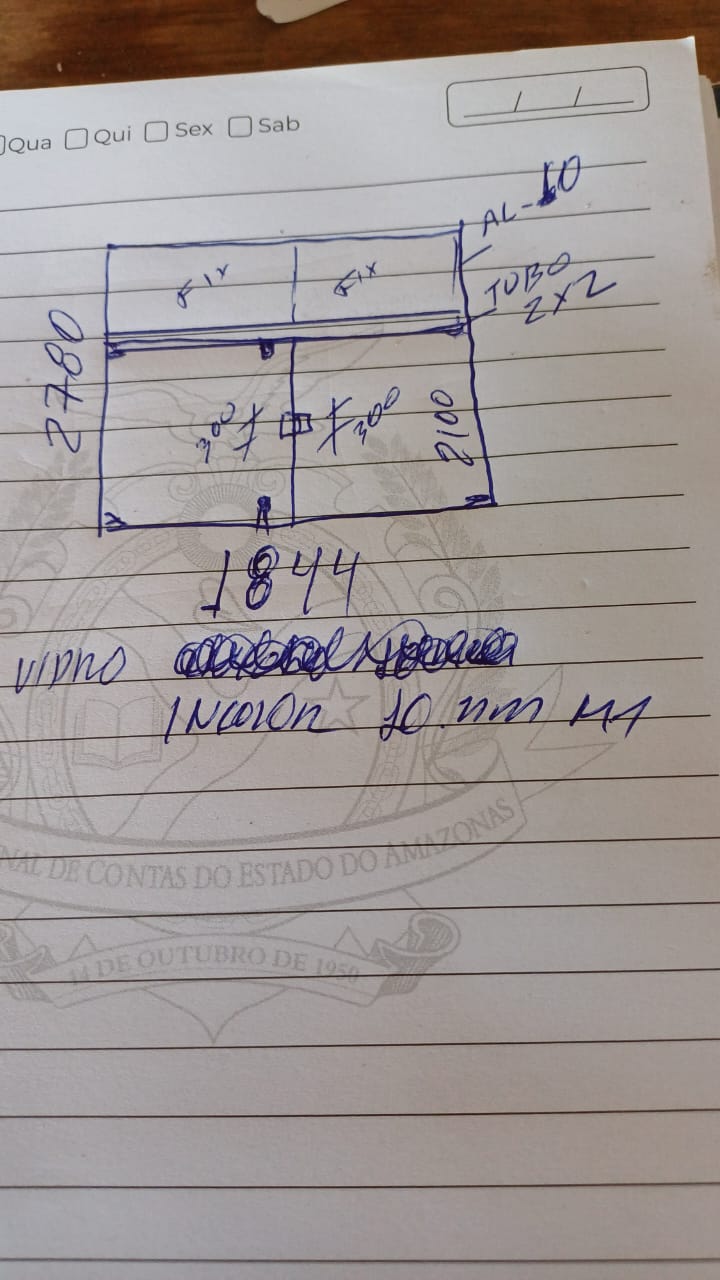 Qua Qui Sex Sab
/ /
AL-10
FIX FIX
TUBO
2x2
2780
300 300
2100
1844
VIDRO
INCOLOR 10 mm
NAL DE CONTAS DO ESTADO DO AMAZONAS
14 DE OUTUBRO DE 1950